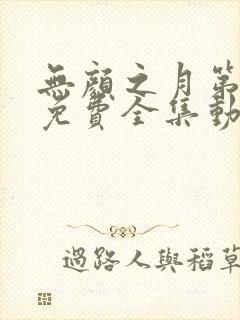 無顏之月第
免費全集動
過路人與稻草